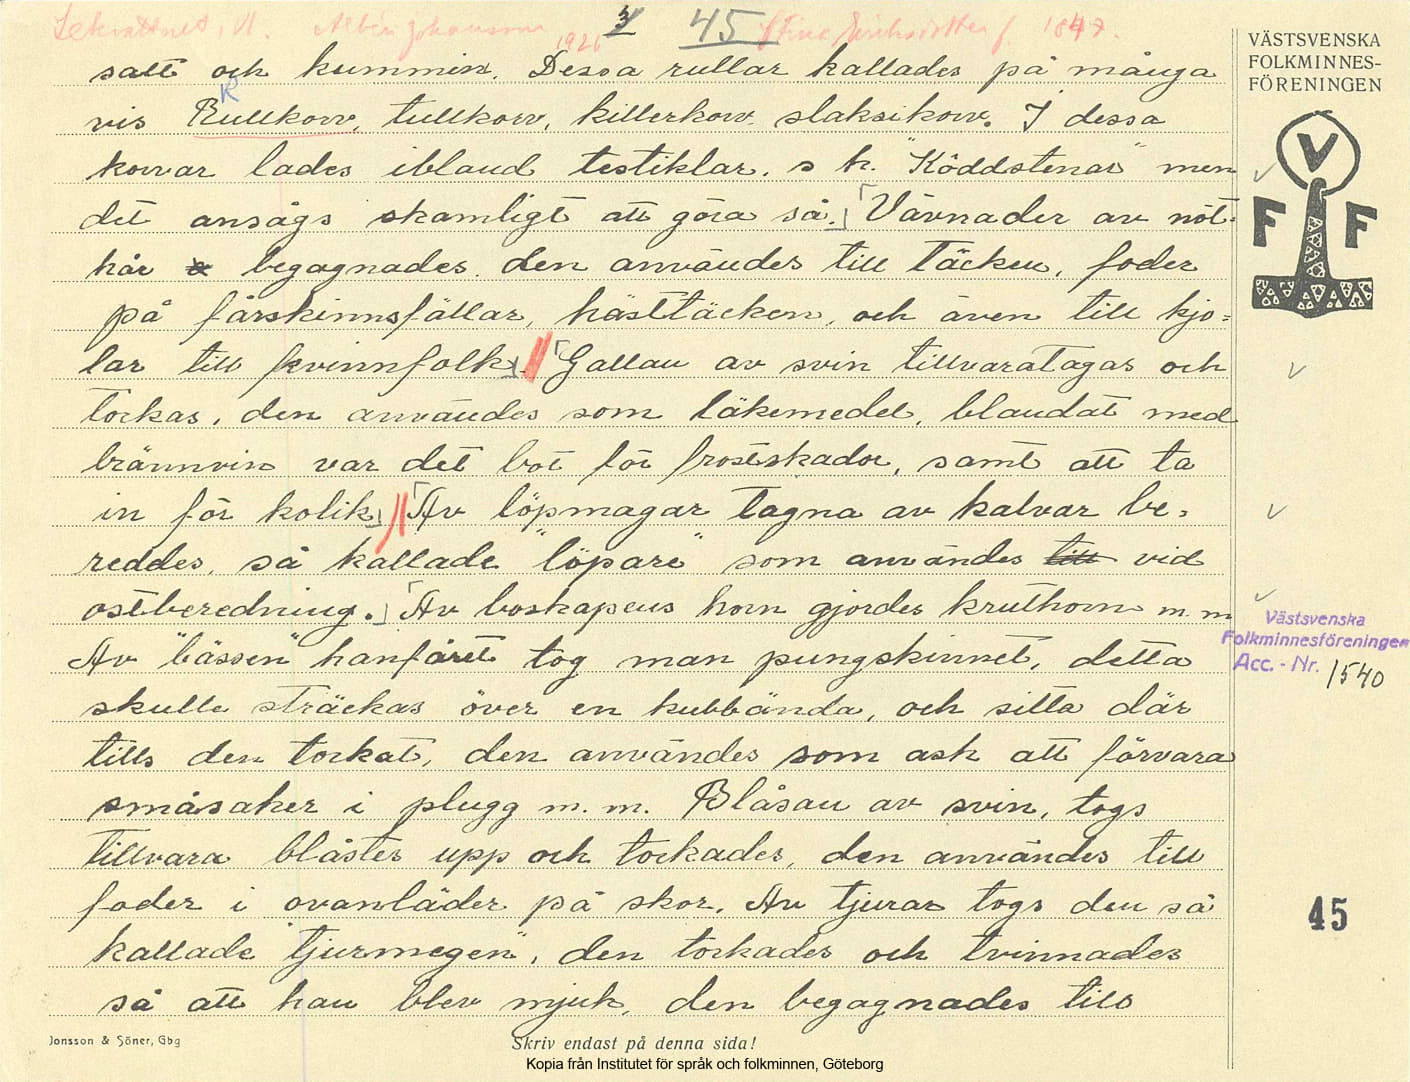 Albin Johansson 1926 3 45 Stina Eriksdotter f. 1847.
salt och kummin. Dessa rullar kallades på många
vis Rullkorv, tullkorv, killerkorv slaksikorv. I dessa
K
korvar lades ibland testiklar. s k. "Köddstenar" men
det ansågs skamligt att göra så. Vävnader av nöt-
hår begagnades. den användes till Täcken, foder
på fårskinnsfällar, hästtäcken, och även till kjo=
lar till kvinnfolk. Gallan av svin tillvaratagas och
torkas, den användes som läkemedel, blandat med
brännvin var det bot för frostskador, samt att ta
in för kolik. Av löpmagar tagna av kalvar be=
reddes, så kallade "löpare" som användes till vid
ostberedning. Av boskapens horn gjordes kruthorn m. m
Av "bässen" hanfåret tog man pungskinnet, detta
skulle sträckas över en kubbända, och sitta där
tills den torkat, den användes som ask att förvara
småsaker i plugg m. m. Blåsan av svin, togs
tillvara blåstes upp och torkades, den användes till
foder i ovanläder på skor. Av tjurar togs den så
kallade "tjurmegen", den torkades och tvinnades
så att han blev mjuk, den begagnades till
Jonsson & Söner, Gbg
Skriv endast på denna sida!
Kopia från Institutet för språk och folkminnen, Göteborg
VÄSTSVENSKA
FOLKMINNES-
FÖRENINGEN
V
F F
Västsvenska
Folkminnesföreningen
Acc. - Nr. 1540
45